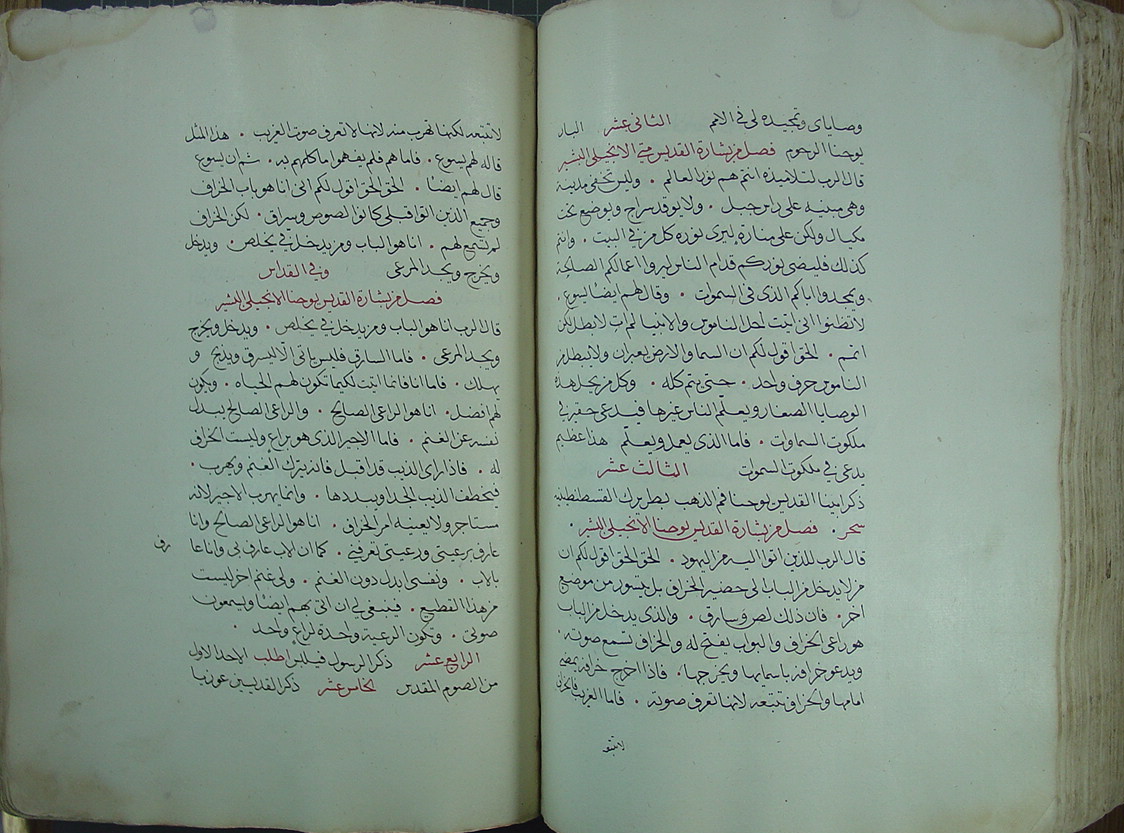 وصاياى وتمجيده لى فى الامم الثانى عشر البار
يوحنا الرحوم فصل من بشارة القديس متى الانجيلى البشير
قال الرب لتلاميذه انتم هم نور العالم • وليس تخفى مدينة
وهى مبنيه على راس جبل • ولا يوقد سراج ويوضع تحت
مكيال ولكن على منارة ليرى نوره كل من فى البيت • وانتم
كذلك فليضى نوركم قدام الناس ليروا اعمالكم الصالحة
ويمجدوا اباكم الذى فى السموات • وقال لهم ايضا يسوع
لا تظنوا انى اتيت لحل الناموس والانبيا لم ات لابطل لكن
اتمم • الحق اقول لكم ان السما والارض يعبران ولا يبطل من
الناموس حرف واحد • حتى يتم كله • وكل من يحل هذه
الوصايا الصغار ويعلم الناس غيرها فيدعى حقير فى
ملكوت السماوات • فاما الذى يعمل ويعلم هذا عظيم
يدعى فى ملكوت السموات الثالث عشر
ذكر ابينا القديس يوحنا فم الذهب بطريرك القسطنطينيه
سحر • فصل من بشارة القديس يوحنا الانجيلى البشير •
قال الرب للذين اتوا اليه من اليهود • الحق الحق اقول لكم ان
من لا يدخل من الباب الى حضير الخراف بل يتسور من موضع
اخر • فان ذلك لص وسارق • والذى يدخل من الباب
هو راعى الخراف والبواب يفتح له والخراف تسمع صوته •
ويدعو خرافه باسمايها ويخرجها • فاذا اخرج خرافه يمضى
امامها والخراف تتبعه لانها تعرف صوته • فاما الغريب فالخراف
لا تتبعه
لا تتبعه لكنها تهرب منه لانها لا تعرف صوت الغريب • هذا المثل
قاله لهم يسوع • فاما هم فلم يفهموا ما كلمهم به • ثم ان يسوع
قال لهم ايضا • الحق الحق اقول لكم انى انا هو باب الخراف
وجميع الذين اتوا قبلى كانوا لصوص وسراق • لكن الخراف
لم تسمع لهم • انا هو الباب ومن يدخل بى يخلص • ويدخل
ويخرج ويجد المرعى وفى القداس
فصل من بشارة القديس يوحنا الانجيلى البشير
قال الرب انا هو الباب ومن يدخل بى يخلص • ويدخل ويخرج
ويجد المرعى • فاما السارق فليس ياتى الا ليسرق ويذبح و
يهلك • فاما انا فانما اتيت لكيما تكون لهم الحياه • ويكون
لهم افضل • انا هو الراعى الصالح • والراعى الصالح يبدل
نفسه عن الغنم • فاما الاجير الذى هو براع وليست الخراف
له • فاذا راى الذيب قد اقبل فانه يترك الغنم ويهرب •
فيخطف الذيب الخراف ويبددها • وانما يهرب الاجير لانه
مستاجر ولا يعنيه امر الخراف • انا هو الراعى الصالح وانا
عارف برعيتى ورعيتى تعرفنى • كما ان الاب عارف بى وانا عا
رف
بالاب • ونفسى ابدل دون الغنم • ولى غنم اخر ليست
من هذا القطيع • فينبغى لى ان اتى بهم ايضا ويسمعون
صوتى • وتكون الرعية واحدة لراع واحد •
الرابع عشر ذكر الرسول فيلبس اطلب الاحد الاول
من الصوم المقدس الخامس عشر ذكر القديسين غوريا